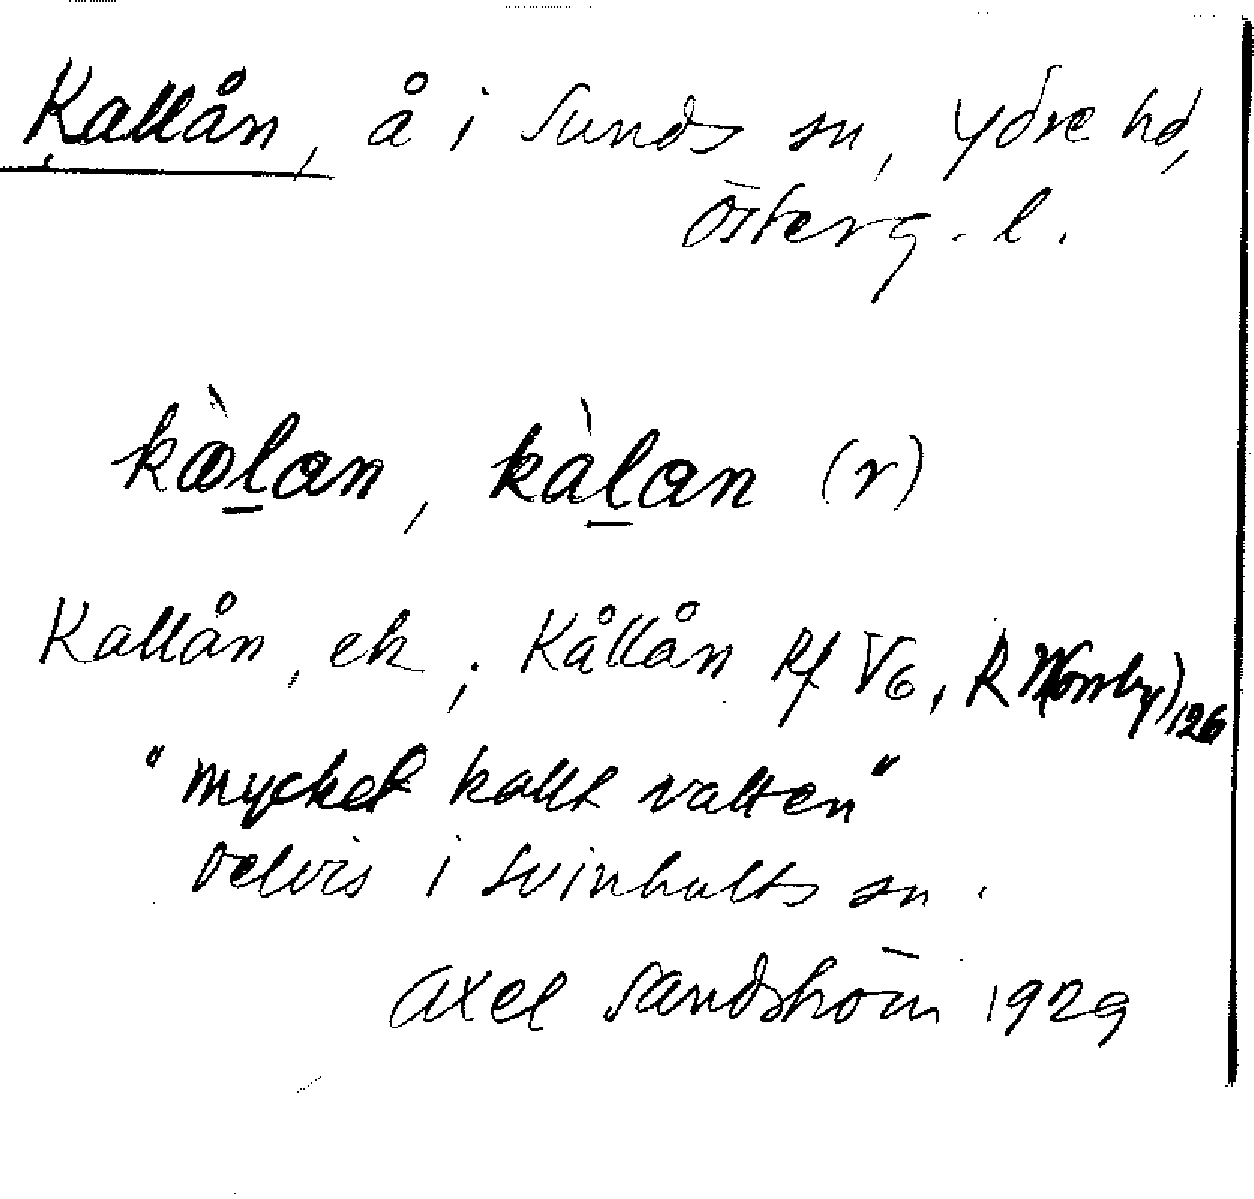 Kallån, å i Sunds sn, Ydre hd,
Österg. l.
kòlan, kàlan (r)
Kallån, ek; Kållån Rf V 6, R 126
"mycket kallt vatten"
Delvis i Svinhults sn.
Axel Sandström 1929